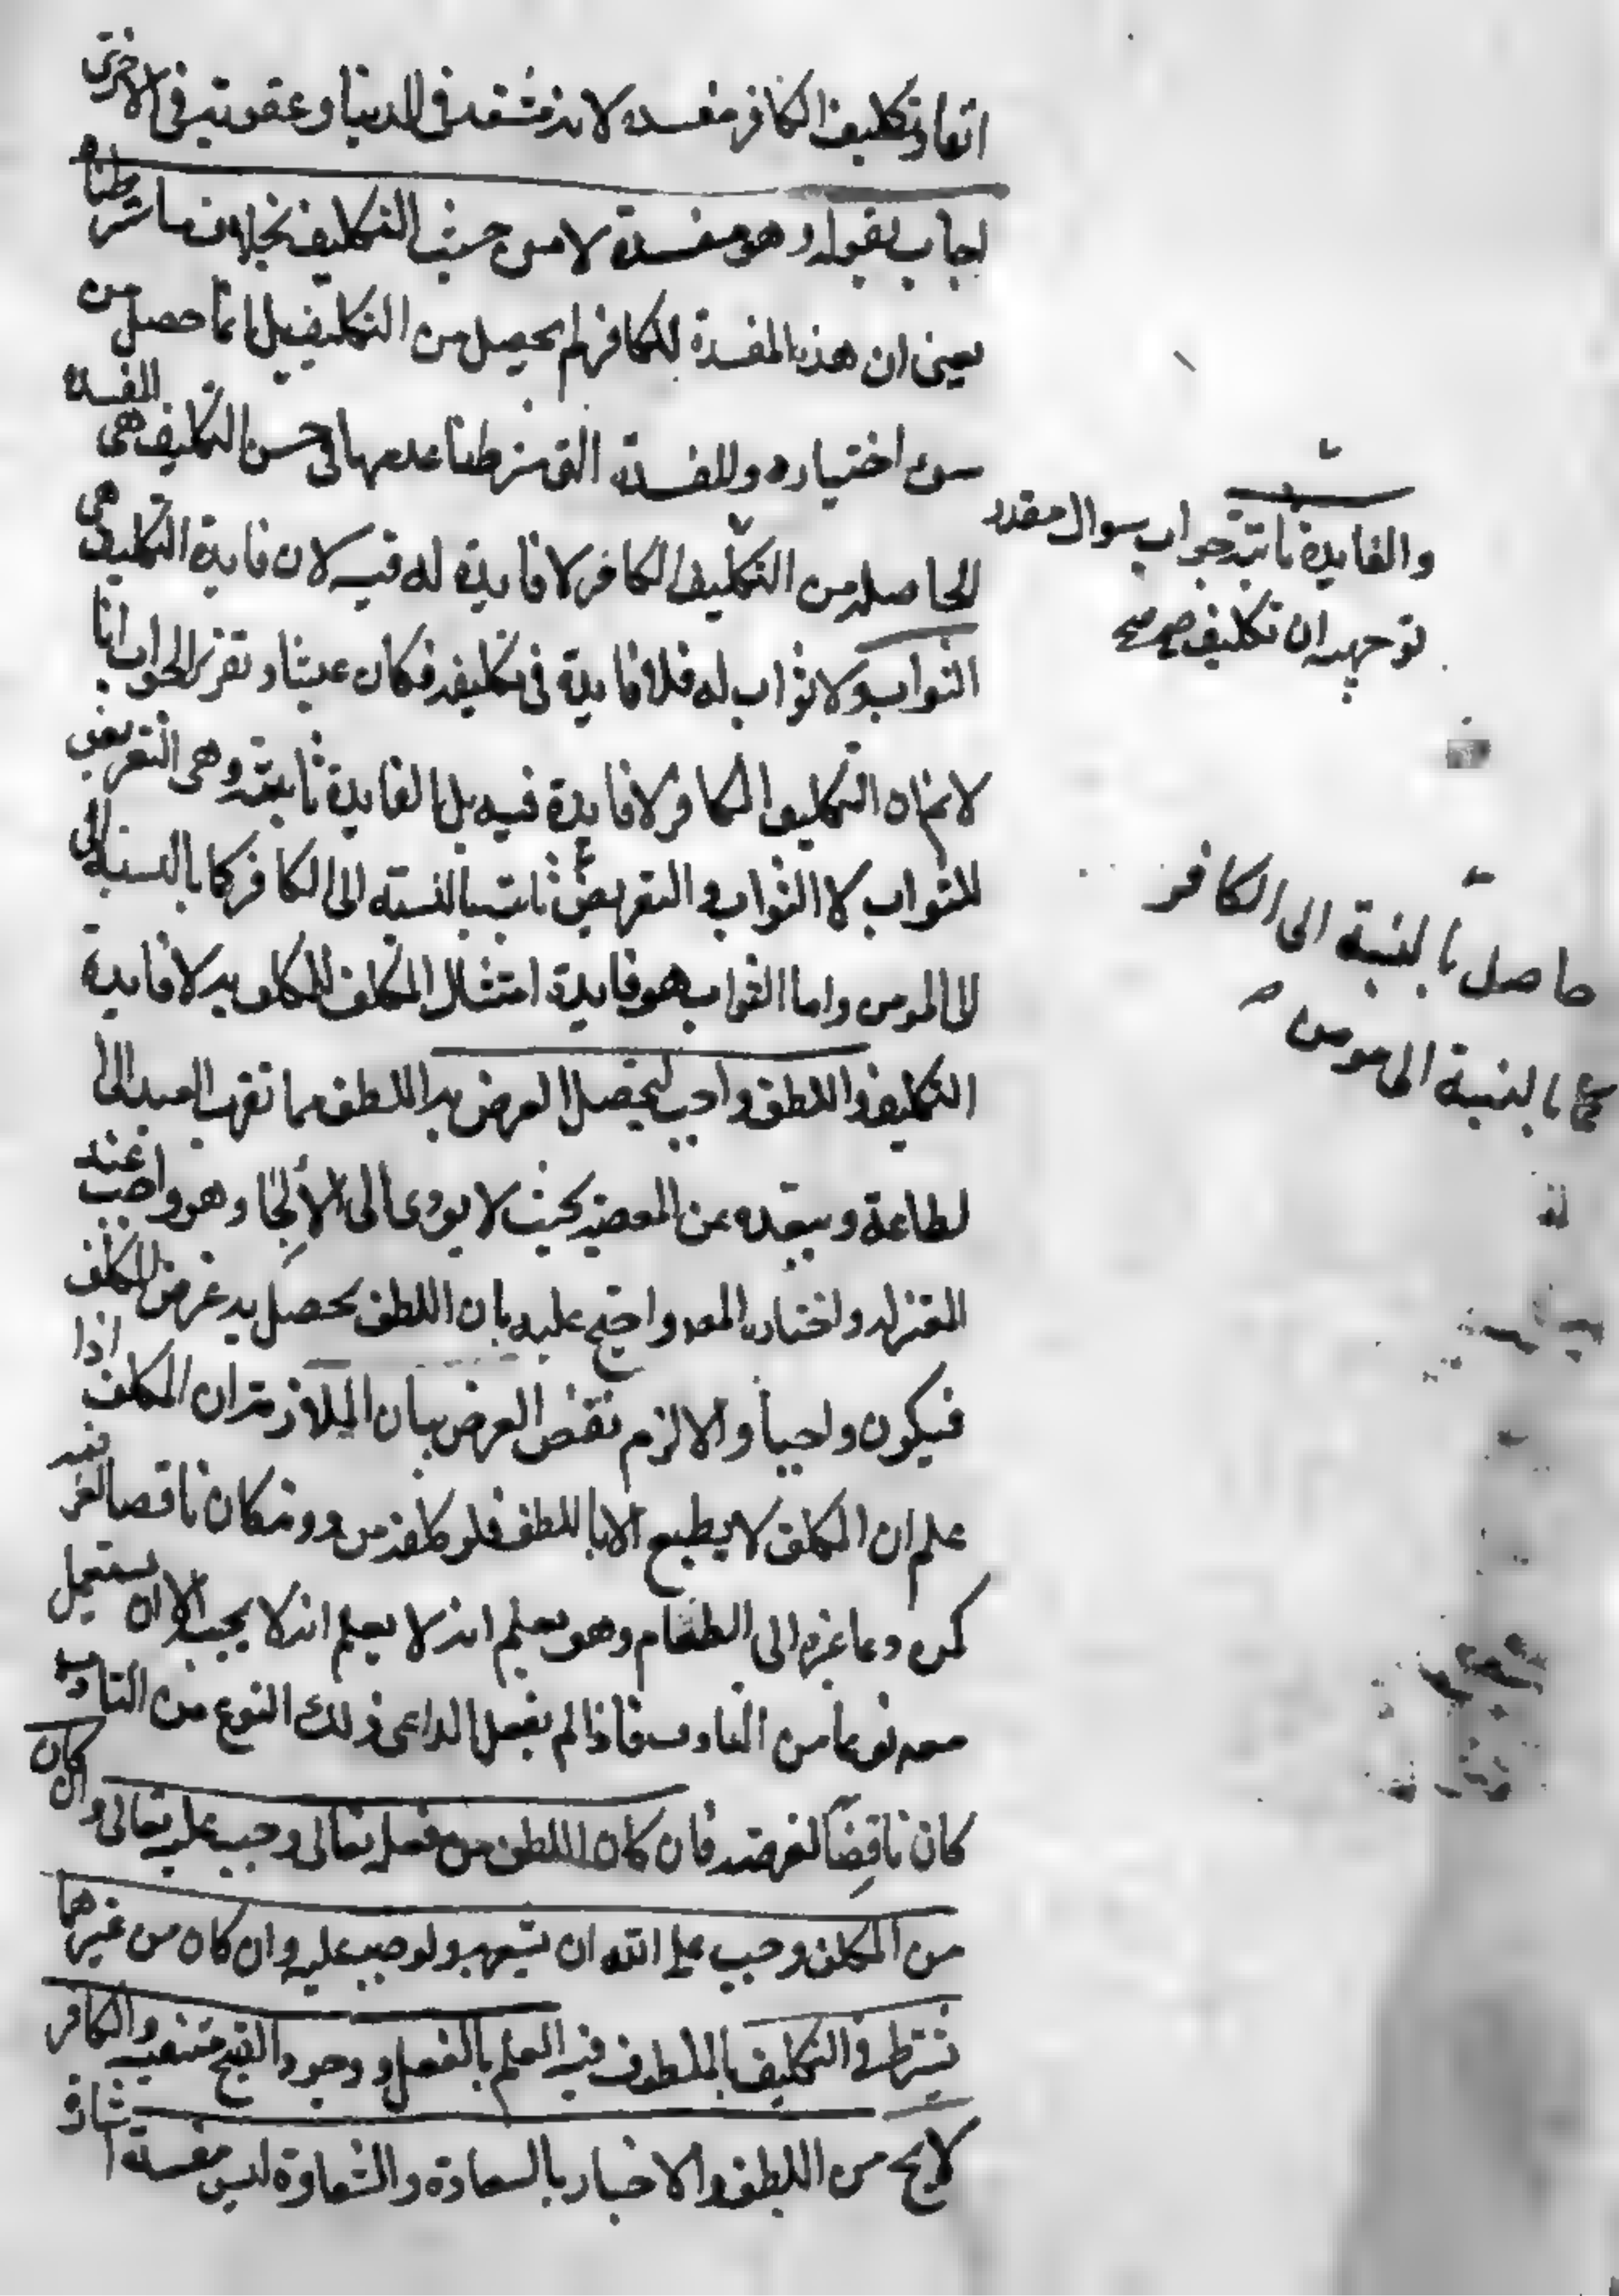 اتفاو تكليف الكافر مفسده لانه مشقه فى الدنيا وعقوبته فى الاخرى
اجاب بقوله وهو مفسدة لا من حيث التكليف بخلاف ما شرطناه
يعنى ان هذه المفسدة للكافر لم يحصل من التكليف بل انما حصل من
سوء اختياره والمفسدة التى شرطنا عدمها فى حسن التكليف هى المفسدة
الحاصله من التكليف الكافر لا فايدة له فيه لان فايدة التكليف هى
الثواب ولا ثواب له فلا فايدة فى تكليفه فكان عبثا وتقرير الجواب انا
لانم ان التكليف الكافر لا فايدة فيه بل الفايدة ثابتة وهى التعريض
للثواب لا الثواب و التعريض ثابت بالنسبة الى الكافر كما بالنسبة الى
المومن واما الثواب هو فايدة امتثال المكلف للمكلف به لا فايدة
التكليف واللطف واجب ليحصل الغرض به اللطف مما تقرب العبد الى
لطاعة ويبعده عن المعصية بحيث لا يودى الى الألجا وهو واجب عند
المعتزله واختاره المص واحتج عليه بان اللطف يحصل به غرض المكلف
فيكون واجباً والا لزم نقض الغرض بيان الملازمة ان المكلف اذا
علم ان المكلف لا يطيع الا باللطف فلو كلفه من دونه كان ناقصا لغرضه
كمن دعا غيره الى الطعام وهو يعلم انه لا يعلم انه لا يجيبه الا ان يستعمل
معه نوعا من التادب فاذا لم يفعل الداعى ذلك النوع من التادب
كان ناقِضاً لغرضه فان كان اللطف من فعله تعالى وجب عليه تعالى وان كان
من المكلف وجب على الله ان يشعره ولوجبه عليه وان كان من غيرهما
شترط فى التكليف بالملطوف فيه العلم بالفعل و وجوه القبح منتفيه والكافر
لا يخ من اللطف والاخبار بالسعادة والشقاوة ليس مفسدة اشارة
والفايدة ثابتة جواب سوال مقدر
توجيهه ان تكليف صح
حاصل بالنسبة الى الكافر
كما بالنسبة الى مومن